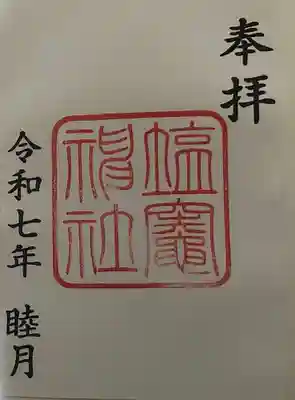 奉拝
鹽竈神社
令和七年 睦月